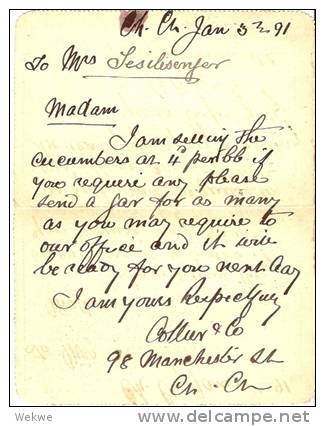 Ch. Ch. Jan 3rd 91
To Mrs
Madam
I am selling the
cucumbers at 4d per lb if
you require any please
send a jar for as many
as you may require to
our office and it will
be ready for you next day
I am yours Respectfully
Collier & Co
98 Manchester St
Ch. Ch
Wekwe
www.delcampe.net